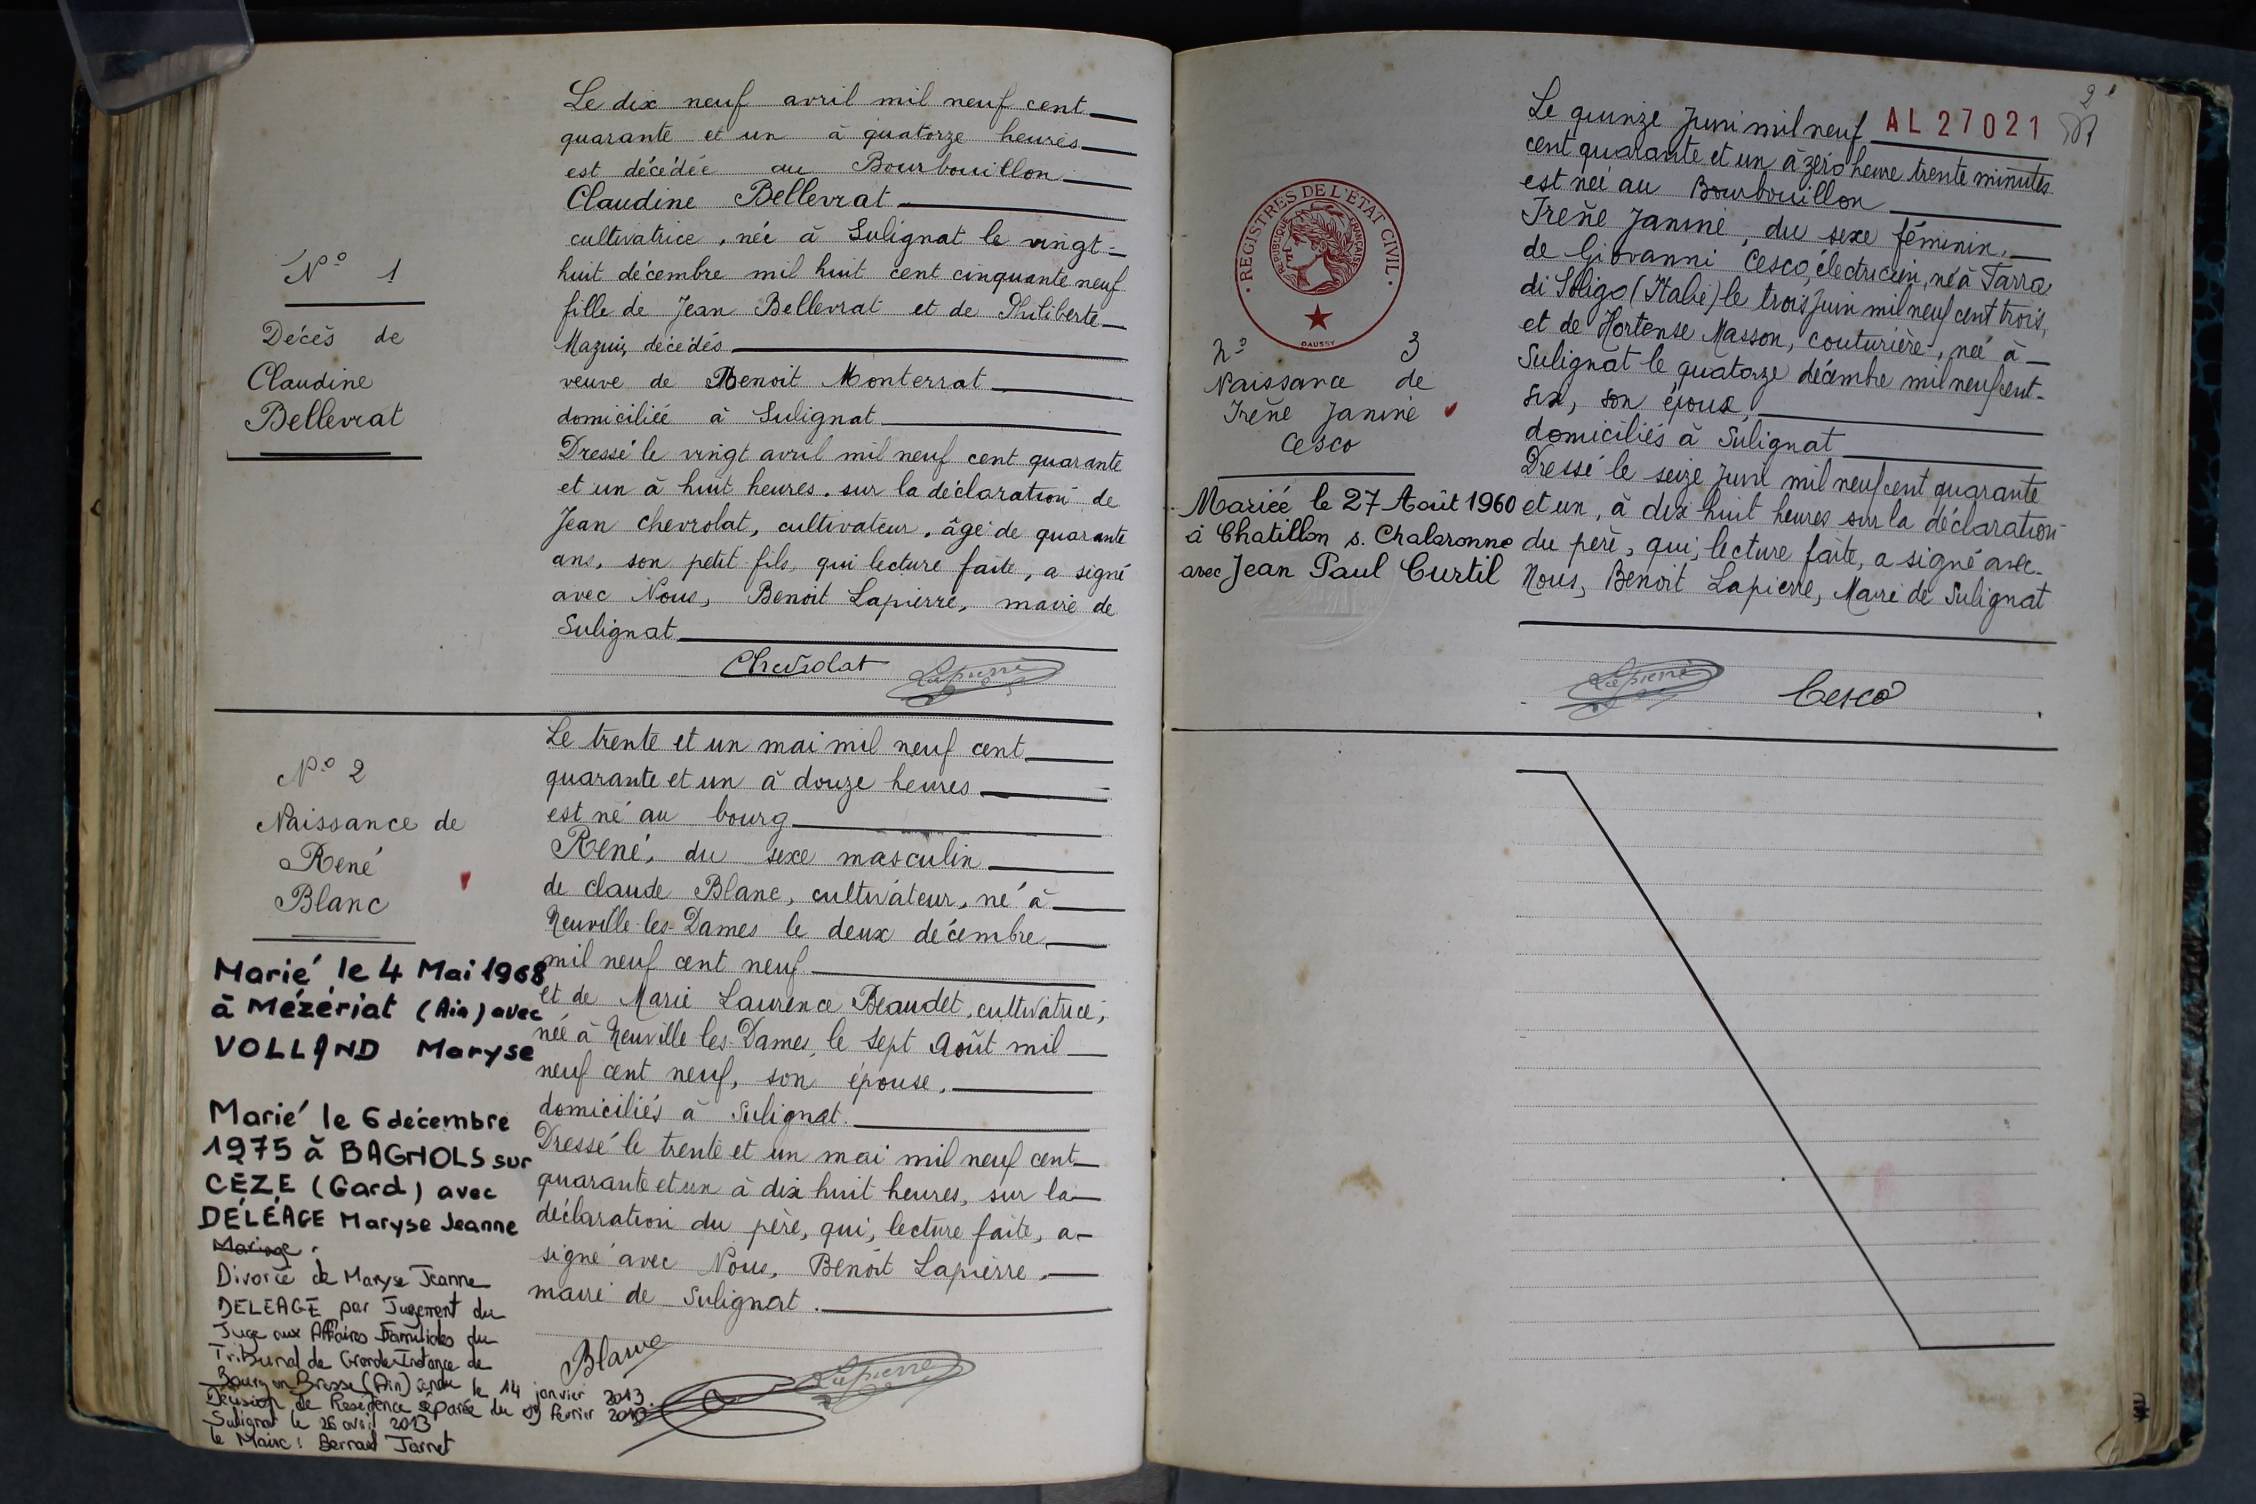 N° 1
Décès de
Claudine
Bellevrat
Le dix neuf avril mil neuf cent
quarante et un à quatorze heures
est décédée au Bourbouillon
Claudine Bellevrat
cultivatrice, née à Sulignat le vingt-
huit décembre mil huit cent cinquante neuf
fille de Jean Bellevrat et de Philiberte
Mazuir, décédés
veuve de Benoit Monterrat
domiciliée à Sulignat
Dressé le vingt avril mil neuf cent quarante
et un à huit heures. sur la déclaration de
Jean Chevrolat, cultivateur, âgé de quarante
ans, son petit fils, qui lecture faite, a signé
avec Nous, Benoit Lapierre, maire de
Sulignat
Chevrolat Lapierre
N° 2
Naissance de
René
Blanc
Marié le 4 Mai 1968
à Mézériat (Ain) avec
VOLLAND Maryse
Marié le 6 décembre
1975 à BAGNOLS sur
CÈZE (Gard) avec
DELÉAGE Maryse Jeanne
Mariage.
Divorcé de Maryse Jeanne
DELEAGE par Jugement du
Juge aux Affaires Familiales du
Tribunal de Grande Instance de
Bourg en Bresse (Ain) rendu le 14 janvier 2013.
Décision de Résidence séparée du février
Sulignat le 26 avril 2013
le Maire: Bernard
Le trente et un mai mil neuf cent
quarante et un à douze heures
est né au bourg
René, du sexe masculin
de Claude Blanc, cultivateur, né à
Neuville-les-Dames le deux décembre
mil neuf cent neuf
et de Marie Laurence Beaudet, cultivatrice,
née à Neuville les-Dames, le sept Août mil
neuf cent neuf, son épouse.
domiciliés à Sulignat.
Dressé le trente et un mai mil neuf cent
quarante et un à dix huit heures, sur la
déclaration du père, qui, lecture faite, a
signé avec Nous, Benoit Lapierre,
maire de Sulignat.
Blanc Lapierre
2
AL27021
REGISTRES DE L'ÉTAT CIVIL
RÉPUBLIQUE FRANÇAISE
DAUSSY
N° 3
Naissance de
Irène Janine
Cesco
Mariée le 27 Août 1960
à Chatillon s. Chalaronne
avec Jean Paul Curtil
Le quinze Juin mil neuf
cent quarante et un à zéro heure trente minutes
est née au Bourbouillon
Irène Janine, du sexe féminin,
de Giovanni Cesco, électricien, né à Farra
di Soligo (Italie) le trois Juin mil neuf cent trois,
et de Hortense Masson, couturière, née à
Sulignat le quatorze décembre mil neuf cent-
six, son épouse,
domiciliés à Sulignat
Dressé le seize Juin mil neuf cent quarante
et un, à dix huit heures sur la déclaration
du père, qui, lecture faite, a signé avec
Nous, Benoit Lapierre, Maire de Sulignat
Lapierre Cesco